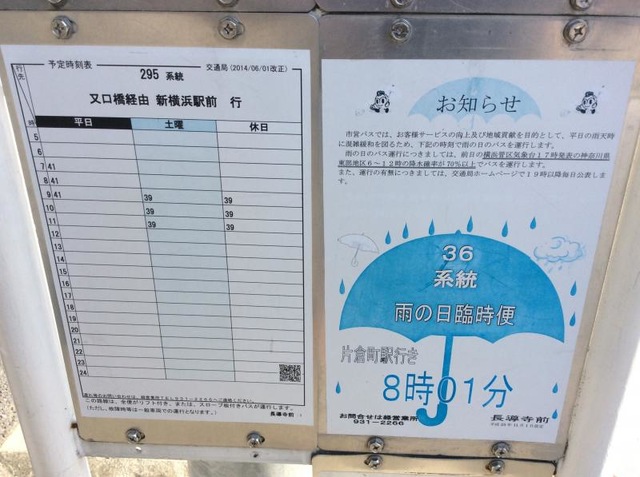 行先
予定時刻表
295 系統
交通局(2014/06/01改正)
又口橋経由 新横浜駅前 行
時
平日
土曜
休日
5
6
7 41
8
9 41 39 39
10 39 39
11 39 39
12
13
14
15
16
17
18
19
20
21
22
23
24
この路線は、全便がリフト付き、または、スロープ板付きバスが運行します。
(ただし、故障時等は一般車両での運行となります。)
長導寺前
お知らせ
市営バスでは、お客様サービスの向上及び地域貢献を目的として、平日の雨天時
に混雑緩和を図るため、下記の時刻で雨の日のバスを運行します。
雨の日のバス運行につきましては、前日の横浜管区気象台17時発表の神奈川県
東部地区6~12時の降水確率が70%以上でバスを運行します。
また、運行の有無につきましては、交通局ホームページで19時以降毎日公表しま
す。
36
系統
雨の日臨時便
片倉町駅行き
8時01分
お問合せは経営業所
931-2266
長導寺前